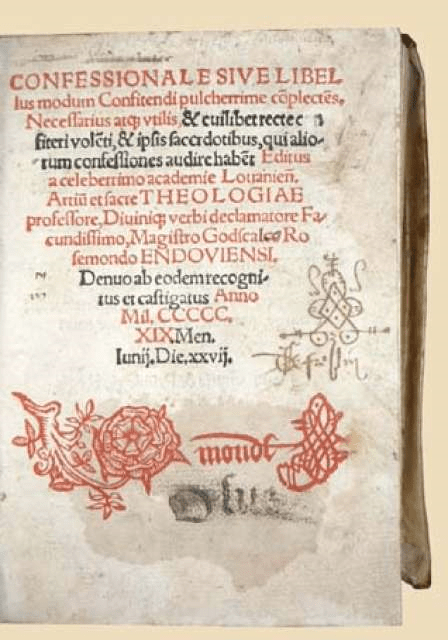 CONFESSIONALE SIVE LIBEL
lus modum Confitendi pulcherrime cõplectẽs,
Necessarius atqȝ vtilis, & cuilibet recte
fiteri volẽti, & ipsis sacerdotibus, qui alio-
rum confessiones audire habẽt Editus
a celeberrimo academie Louanieñ.
Artiũ et sacre THEOLOGIAE
professore, Diuiniqȝ verbi declamatore Fa-
cundissimo, Magistro Godscalco Ro
semondo ENDOVIENSI.
Denuo ab eodem recogni-
tus et castigatus Anno
Mil. CCCCC.
XIX Men.
Iunij. Die. xxvij.
monde